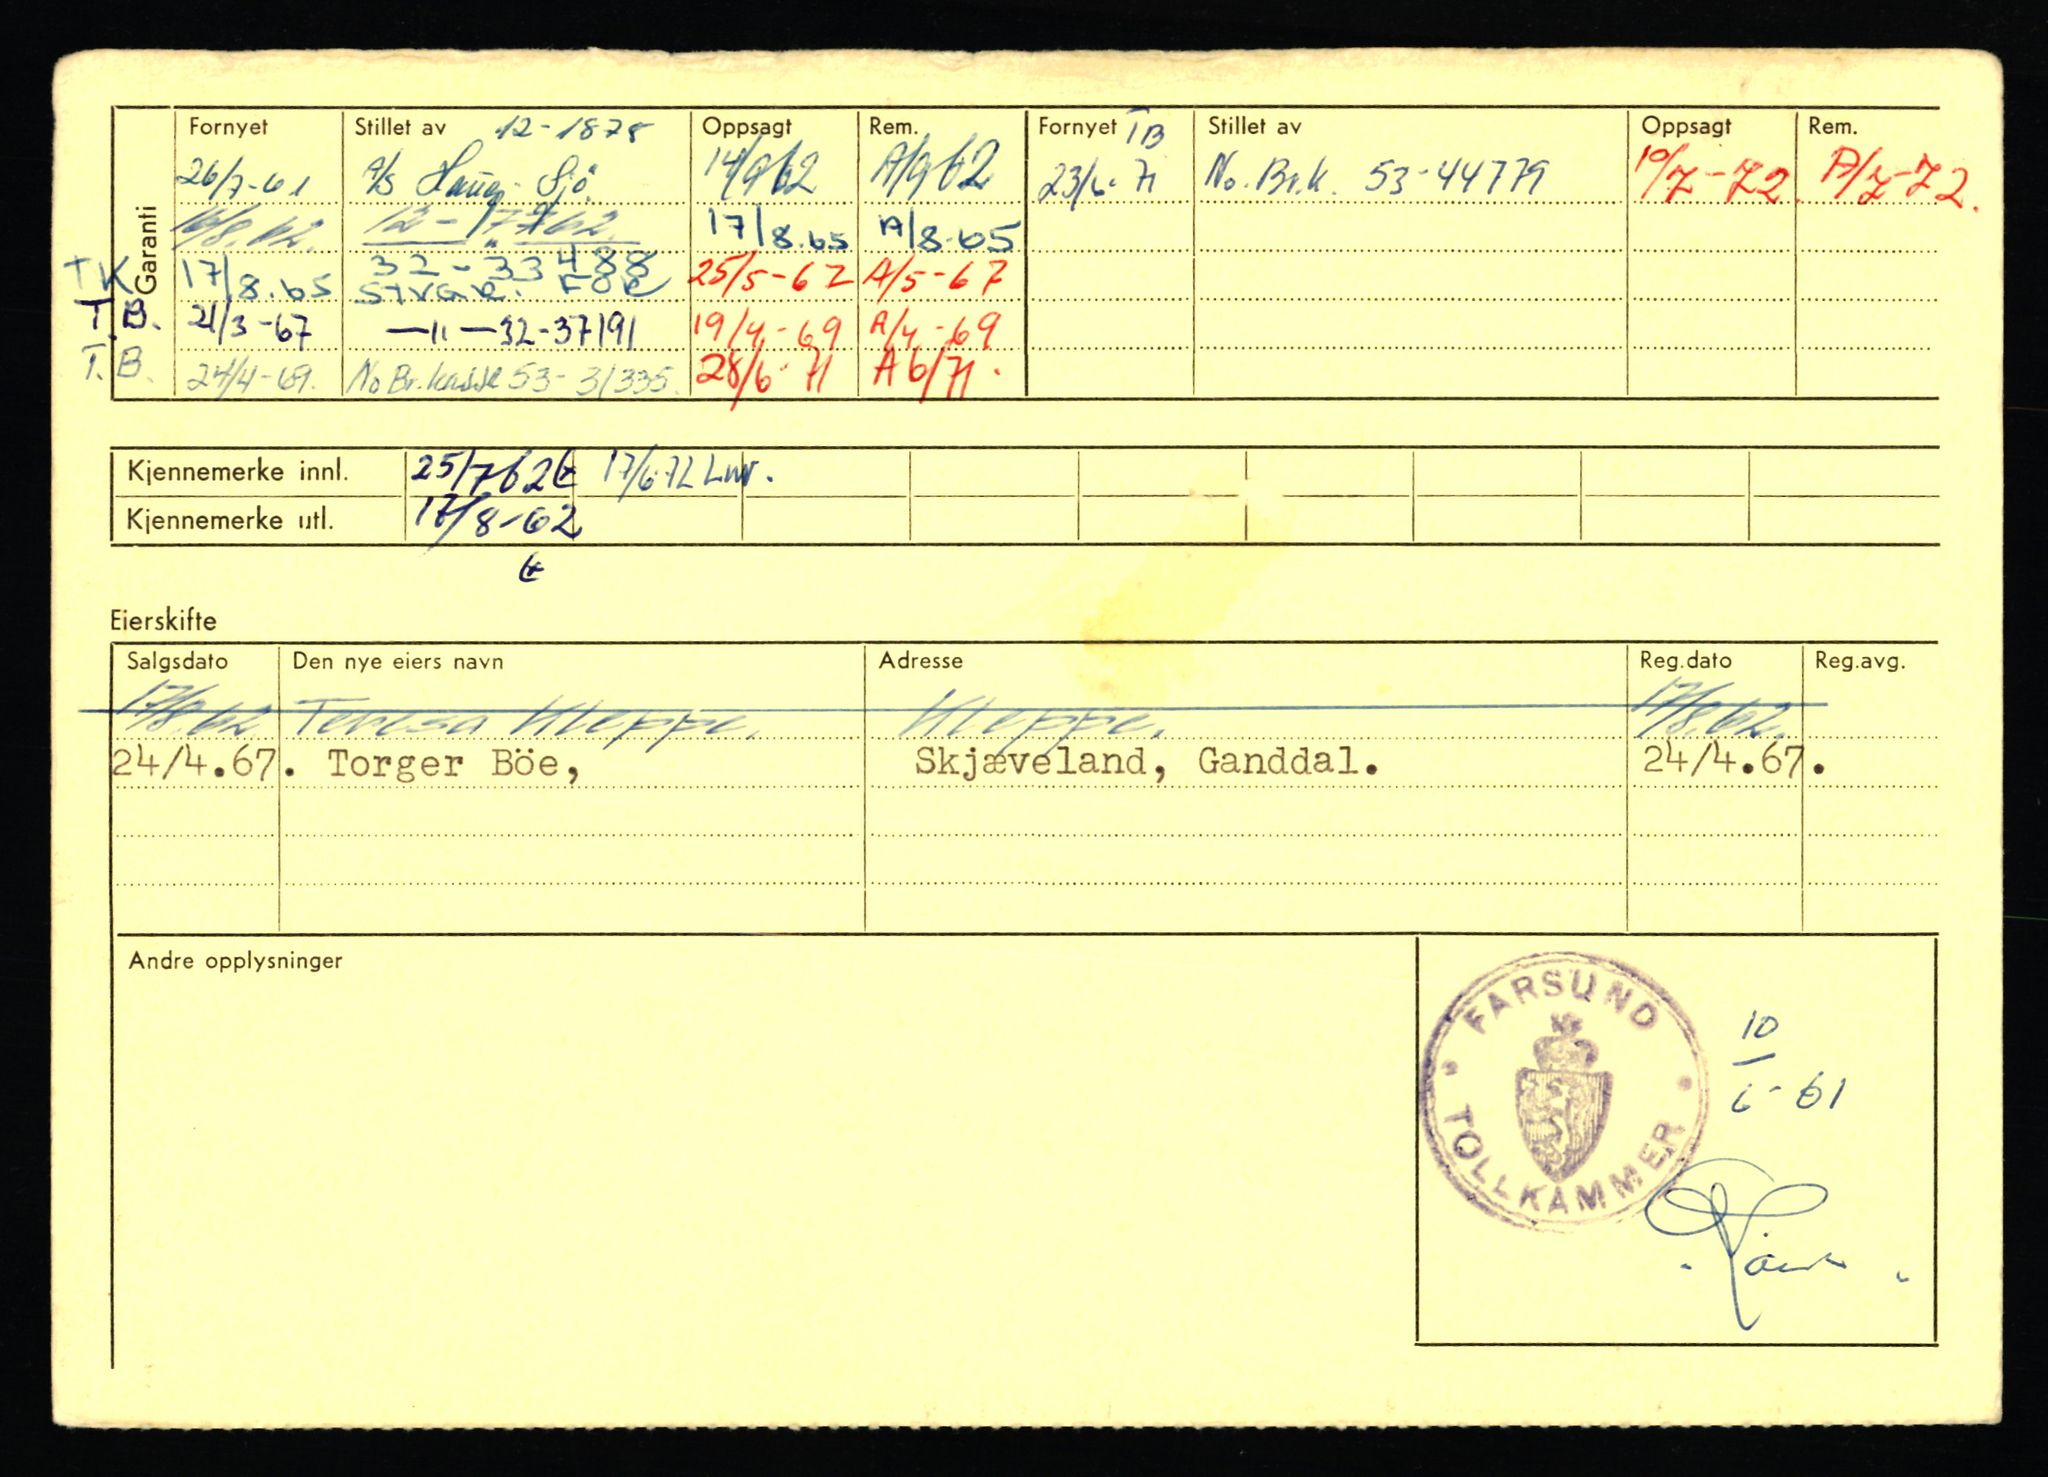 Garanti
Fornyet Stillet av 12-1878 Oppsagt Rem. Fornyet TB Stillet av Oppsagt Rem.
26/7-61 A/S Hauge-Sjö 14/9 62 A/9 62 23/6-71 No. Br.k. 53-44779 10/7-72. A/7-72.
16/8.62. 12-17762. 17/8.65 A/8-65
TK 17/8.65 32-33488 25/5-67 A/5-67
T.B. 21/3-67 —"—32-37191 19/4-69 A/4-69
T.B. 24/4-69. No Br.kasse 53-31335. 28/6-71 A 6/71.
Kjennemerke innl. 25/7 62 17/6-72
Kjennemerke utl. 17/8-62
Eierskifte
Salgsdato Den nye eiers navn Adresse Reg.dato Reg.avg.
17/8.62 Teresa Kleppe. Kleppe. 17/8.62.
24/4.67. Torger Böe, Skjæveland, Ganddal. 24/4.67.
Andre opplysninger
FARSUND TOLLKAMMER
10
6-61